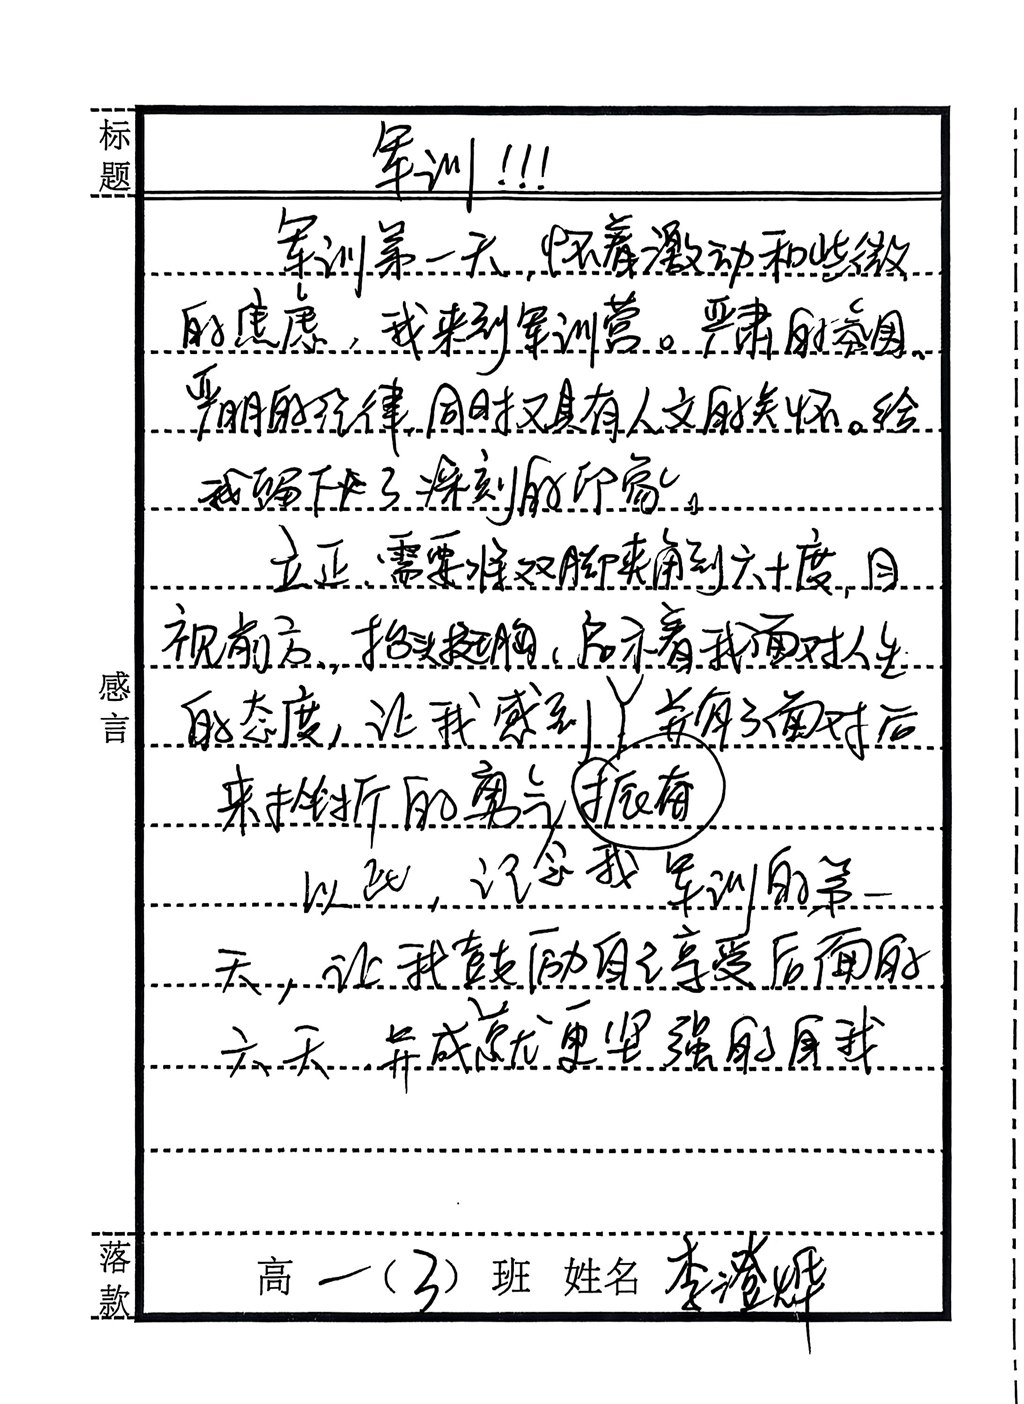 标题
军训!!!
军训第一天,怀着激动和些微
的焦虑,我来到军训营。严肃的氛围、
严明的纪律,同时又具有人文的关怀。给
我留下了深刻的印象。
立正、需要将双脚夹角到六十度,目
视前方,抬头挺胸,启示着我面对人生
的态度,让我感到 并有了面对后
来挫折的勇气 振奋
以此,记念我军训的第一
天,让我鼓励自己享受后面的
六天,并成就更坚强的自我
感言
落款
高一(3)班 姓名 李澄烨